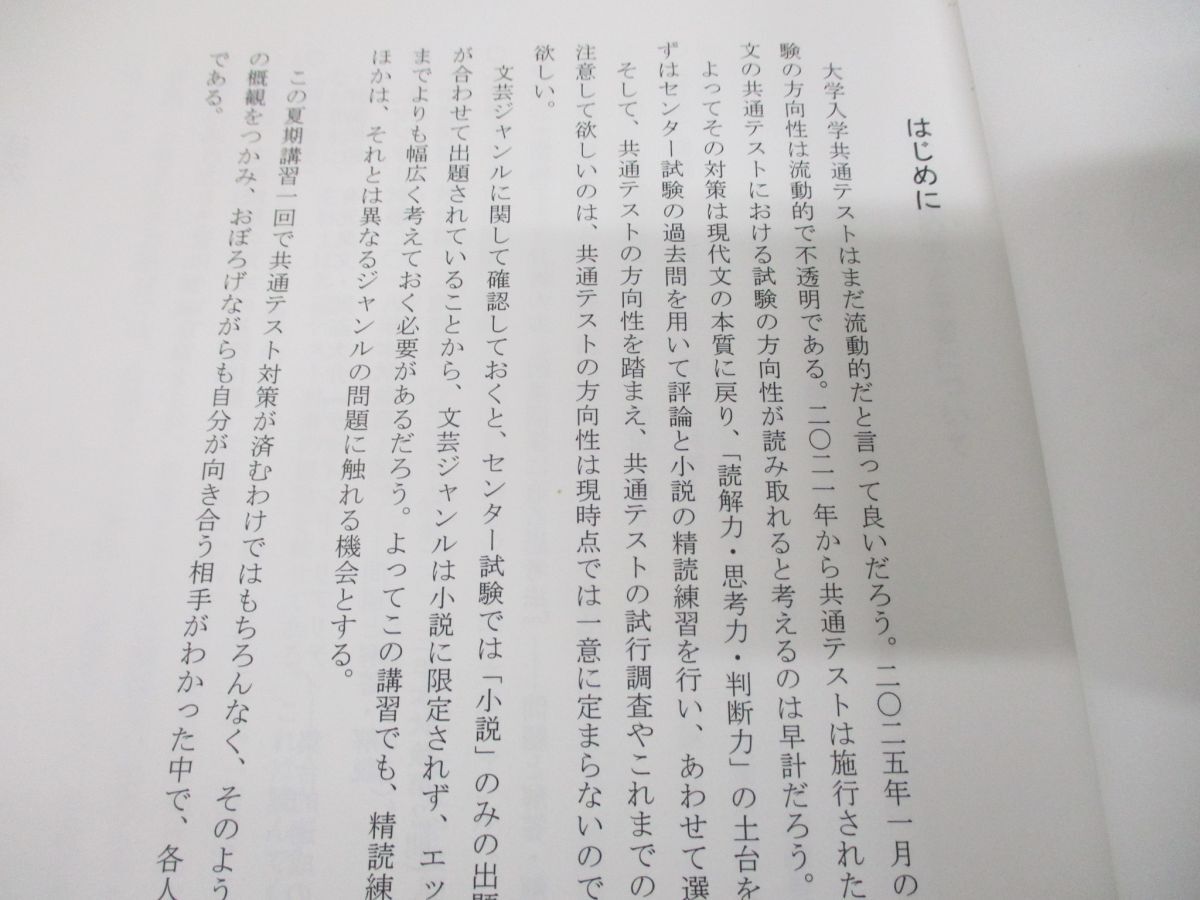 はじめに
大学入学共通テストはまだ流動的だと言って良いだろう。二〇二五年一月の
験の方向性は流動的で不透明である。二〇二一年から共通テストは施行された
文の共通テストにおける試験の方向性が読み取れると考えるのは早計だろう。
よってその対策は現代文の本質に戻り、「読解力・思考力・判断力」の土台を
ずはセンター試験の過去問を用いて評論と小説の精読練習を行い、あわせて選
そして、共通テストの方向性を踏まえ、共通テストの試行調査やこれまでの
注意して欲しいのは、共通テストの方向性は現時点では一意に定まらないので
欲しい。
文芸ジャンルに関して確認しておくと、センター試験では「小説」のみの出題
が合わせて出題されていることから、文芸ジャンルは小説に限定されず、エッ
までよりも幅広く考えておく必要があるだろう。よってこの講習でも、精読練
ほかは、それとは異なるジャンルの問題に触れる機会とする。
この夏期講習一回で共通テスト対策が済むわけではもちろんなく、そのよう
の概観をつかみ、おぼろげながらも自分が向き合う相手がわかった中で、各人
である。